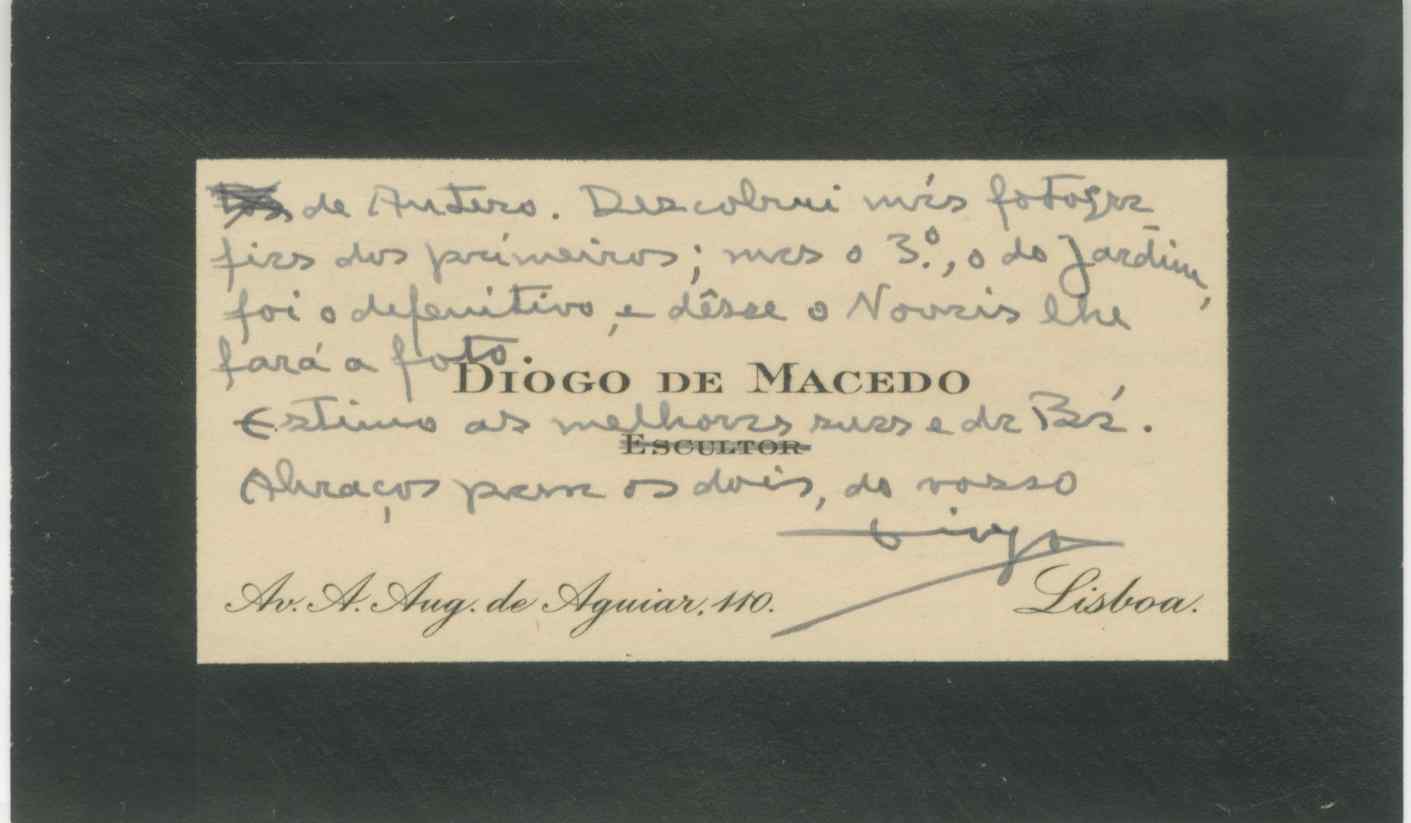 de Antero. Descobrui más fotogra
fias dos primeiros; mas o 3.º, o do Jardim,
foi o defenitivo, e dêsse o Novais lhe
fará a foto.
DIOGO DE MACEDO
Estimo as melhoras suas e da Bá.
ESCULTOR
Abraços para os dois, do vosso
Diogo
Av. A. Aug. de Aguiar, 110. Lisboa.